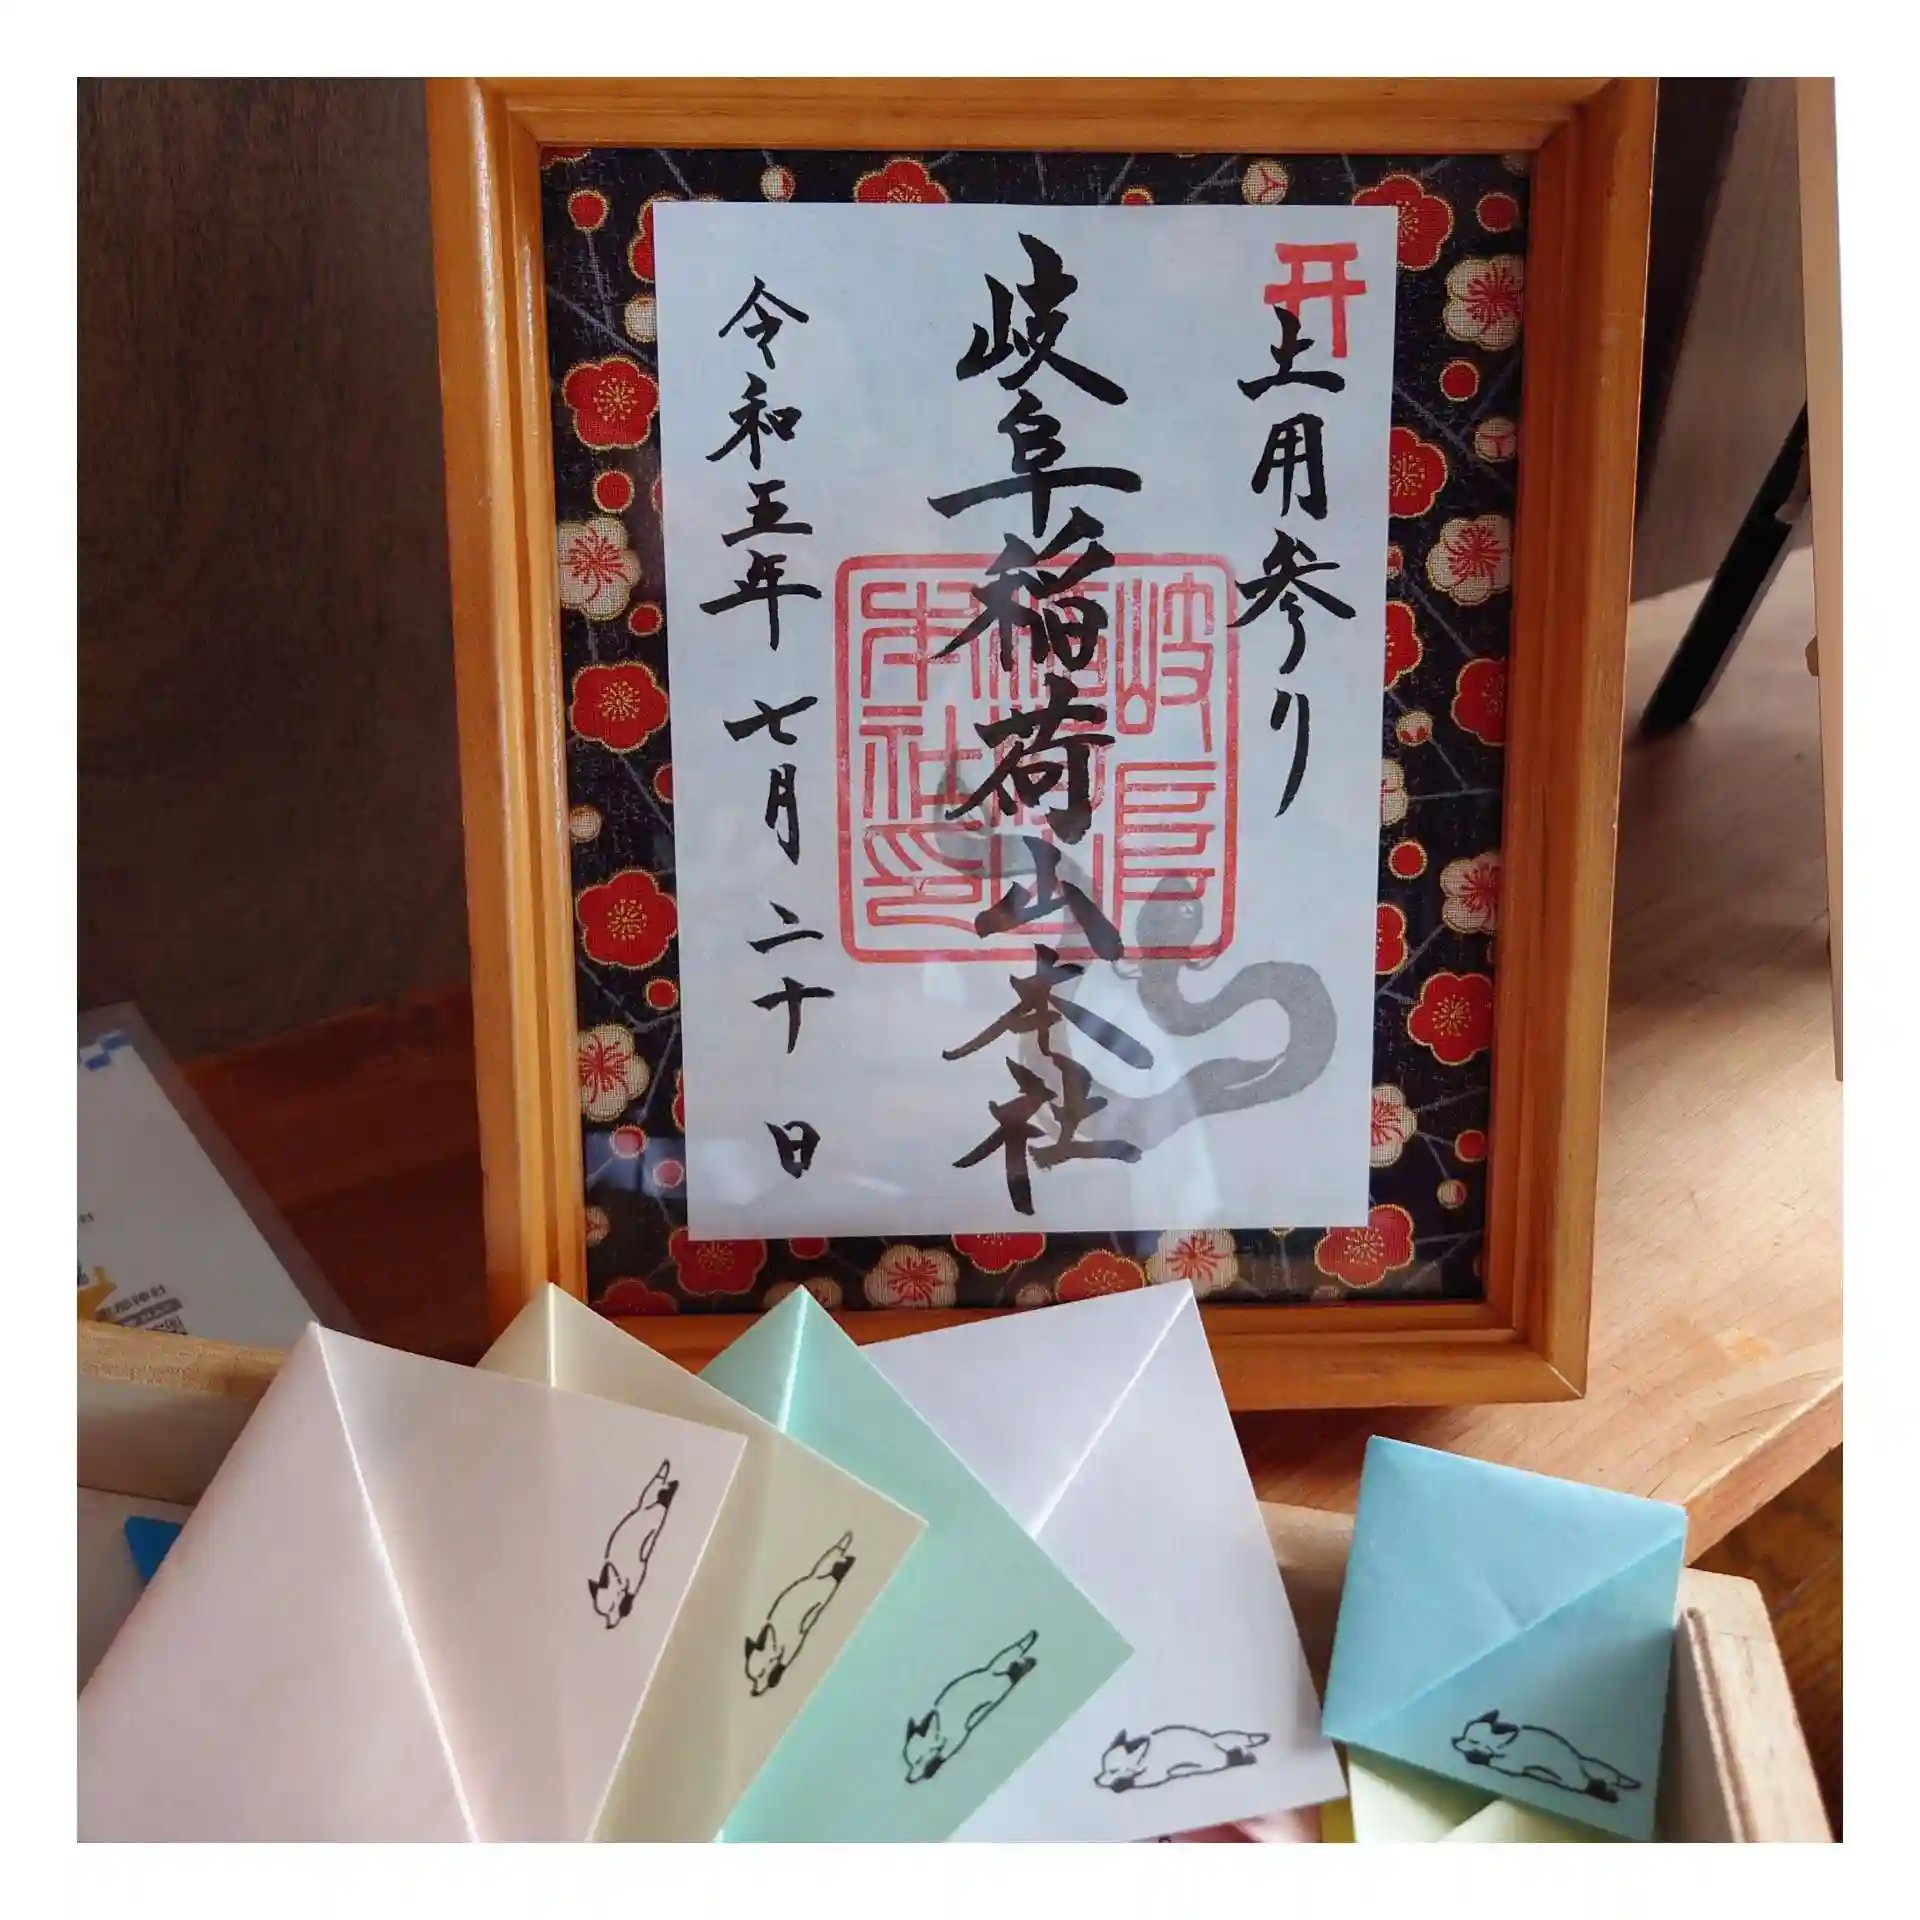 土用参り
岐阜稲荷山本社
令和五年 七月二十日
岐阜
稲荷山
本社印
神社